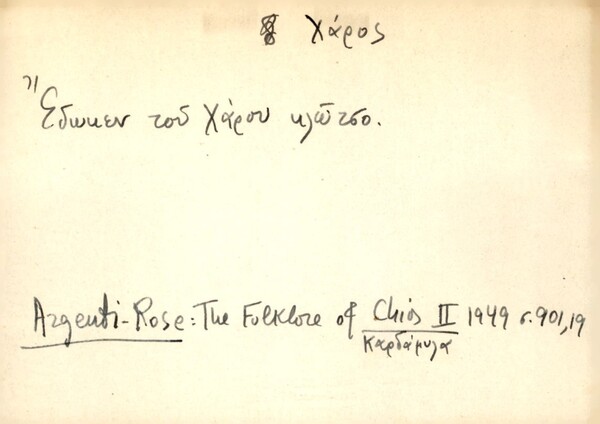 Χάρος
Ἔδωκεν τοῦ Χάρου κλῶτσο.
Argenti-Rose: The Folklore of Chios II 1949 σ. 901,19
Καρδάμυλα